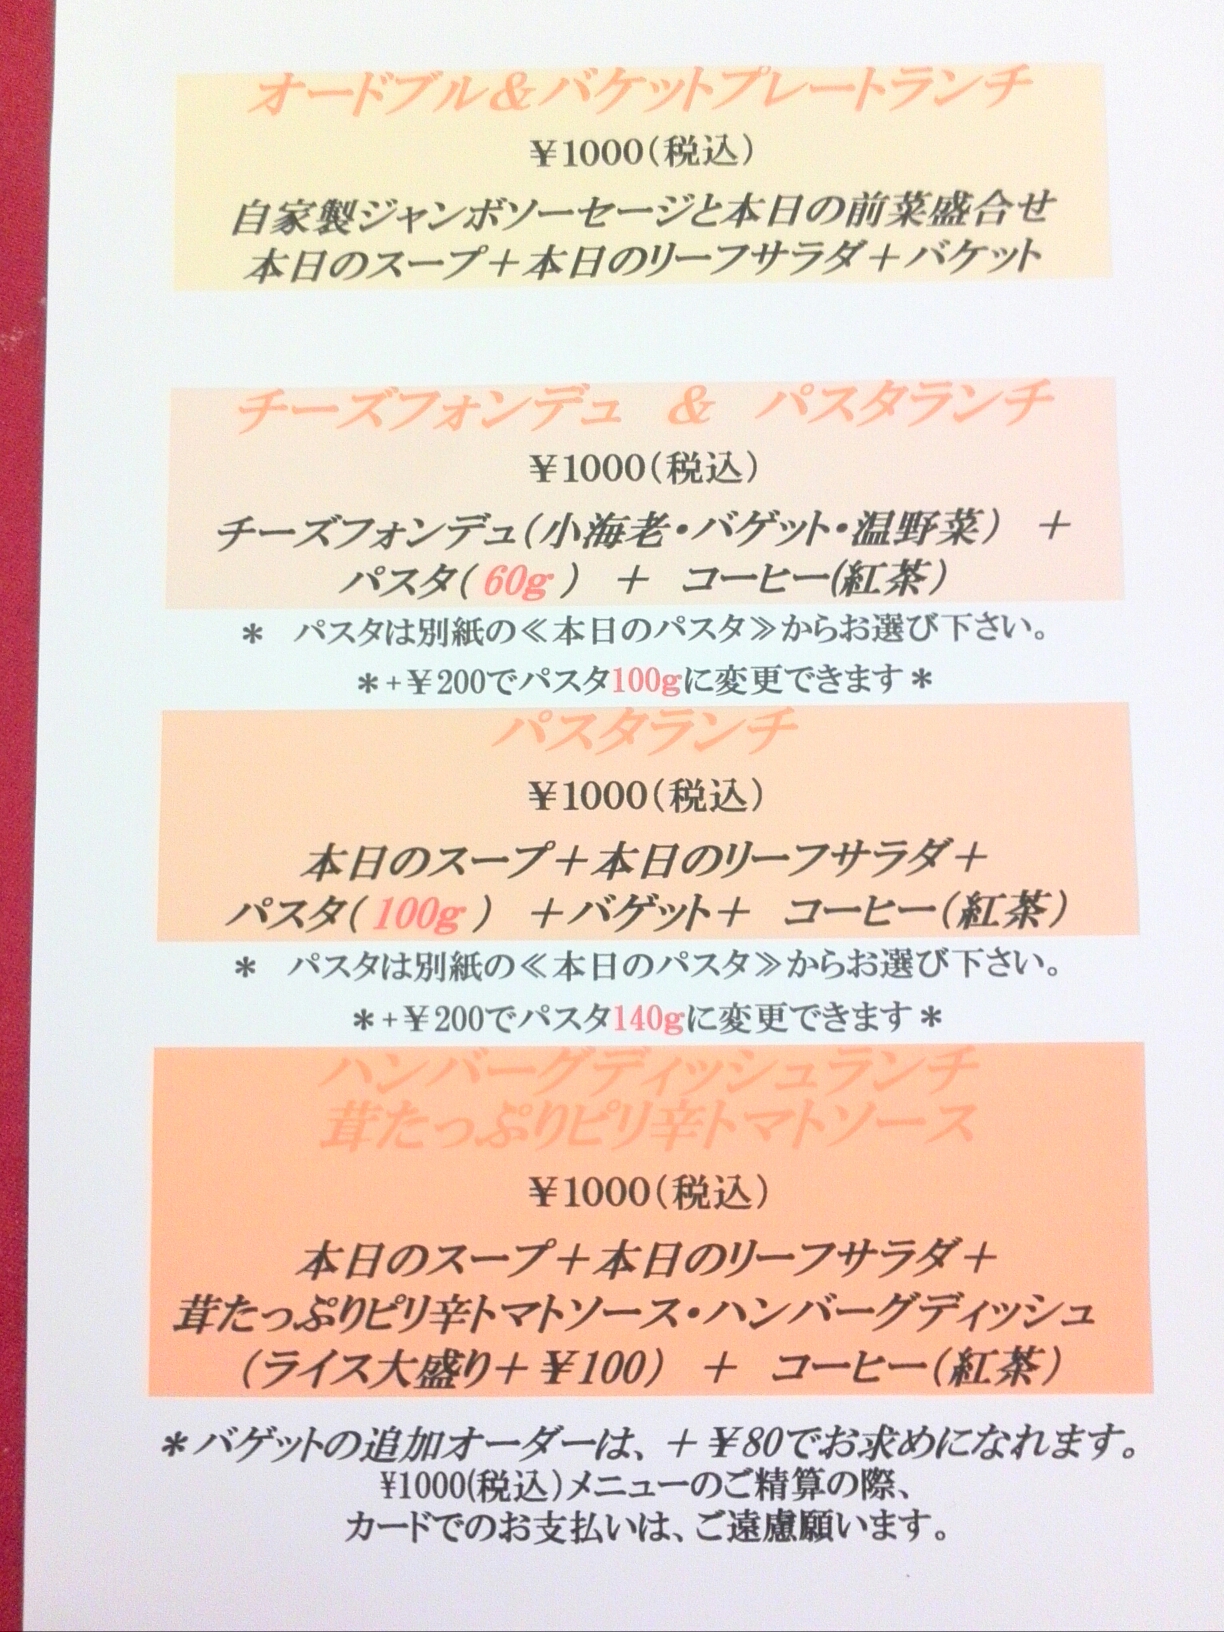 オードブル＆バケットプレートランチ
￥1000（税込）
自家製ジャンボソーセージと本日の前菜盛合せ
本日のスープ＋本日のリーフサラダ＋バケット
チーズフォンデュ ＆ パスタランチ
￥1000（税込）
チーズフォンデュ（小海老・バゲット・温野菜） ＋
パスタ（60g） ＋ コーヒー(紅茶）
＊ パスタは別紙の≪本日のパスタ≫からお選び下さい。
＊+￥200でパスタ100gに変更できます＊
パスタランチ
￥1000（税込）
本日のスープ＋本日のリーフサラダ＋
パスタ（100g） ＋バゲット＋ コーヒー（紅茶）
＊ パスタは別紙の≪本日のパスタ≫からお選び下さい。
＊+￥200でパスタ140gに変更できます＊
ハンバーグディッシュランチ
茸たっぷりピリ辛トマトソース
￥1000（税込）
本日のスープ＋本日のリーフサラダ＋
茸たっぷりピリ辛トマトソース・ハンバーグディッシュ
（ライス大盛り＋￥100） ＋ コーヒー（紅茶）
＊バゲットの追加オーダーは、＋￥80でお求めになれます。
¥1000(税込）メニューのご精算の際、
カードでのお支払いは、ご遠慮願います。